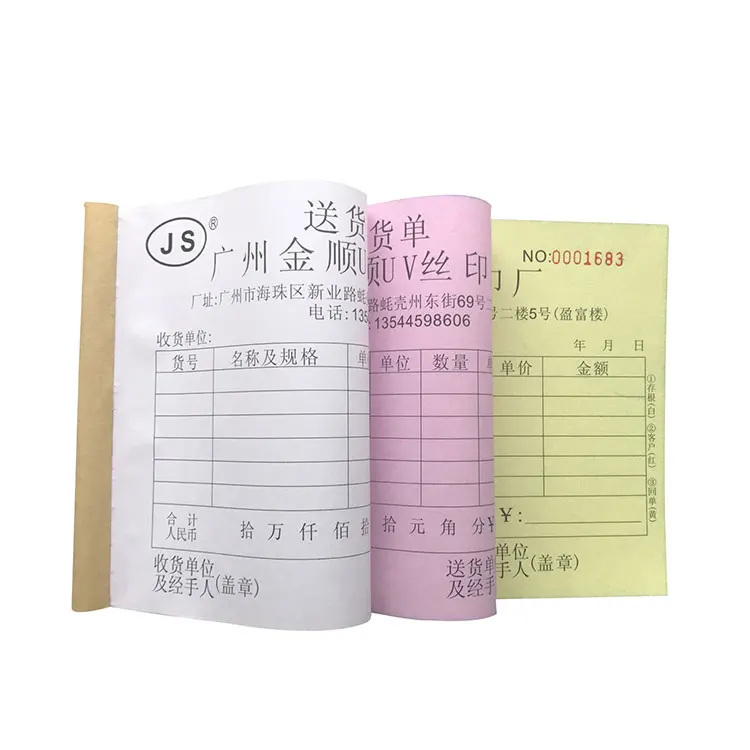 JS ®
送货
广州金顺U
厂址:广州市海珠区新业路蚝
电话:135
收货单位:
货号 名称及规格 单
合计
人民币 拾 万 仟 佰 拾
收货单位
及经手人(盖章)
货单
顾UV丝印
路蚝壳州东街69号二
13544598606
单位 数量
拾 元 角 分¥
送货单
及经手
NO:0001683
厂
号二楼5号(盈富楼)
年 月 日
单价 金额
¥:
单位
手人(盖章)
①存根(白) ②客户(红) ③回单(黄)